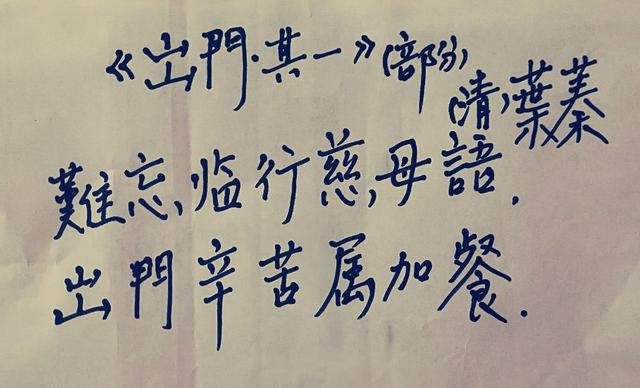 《出門·其一》(部份)
(清)葉蓁
難忘临行慈母語.
出門辛苦属加餐.